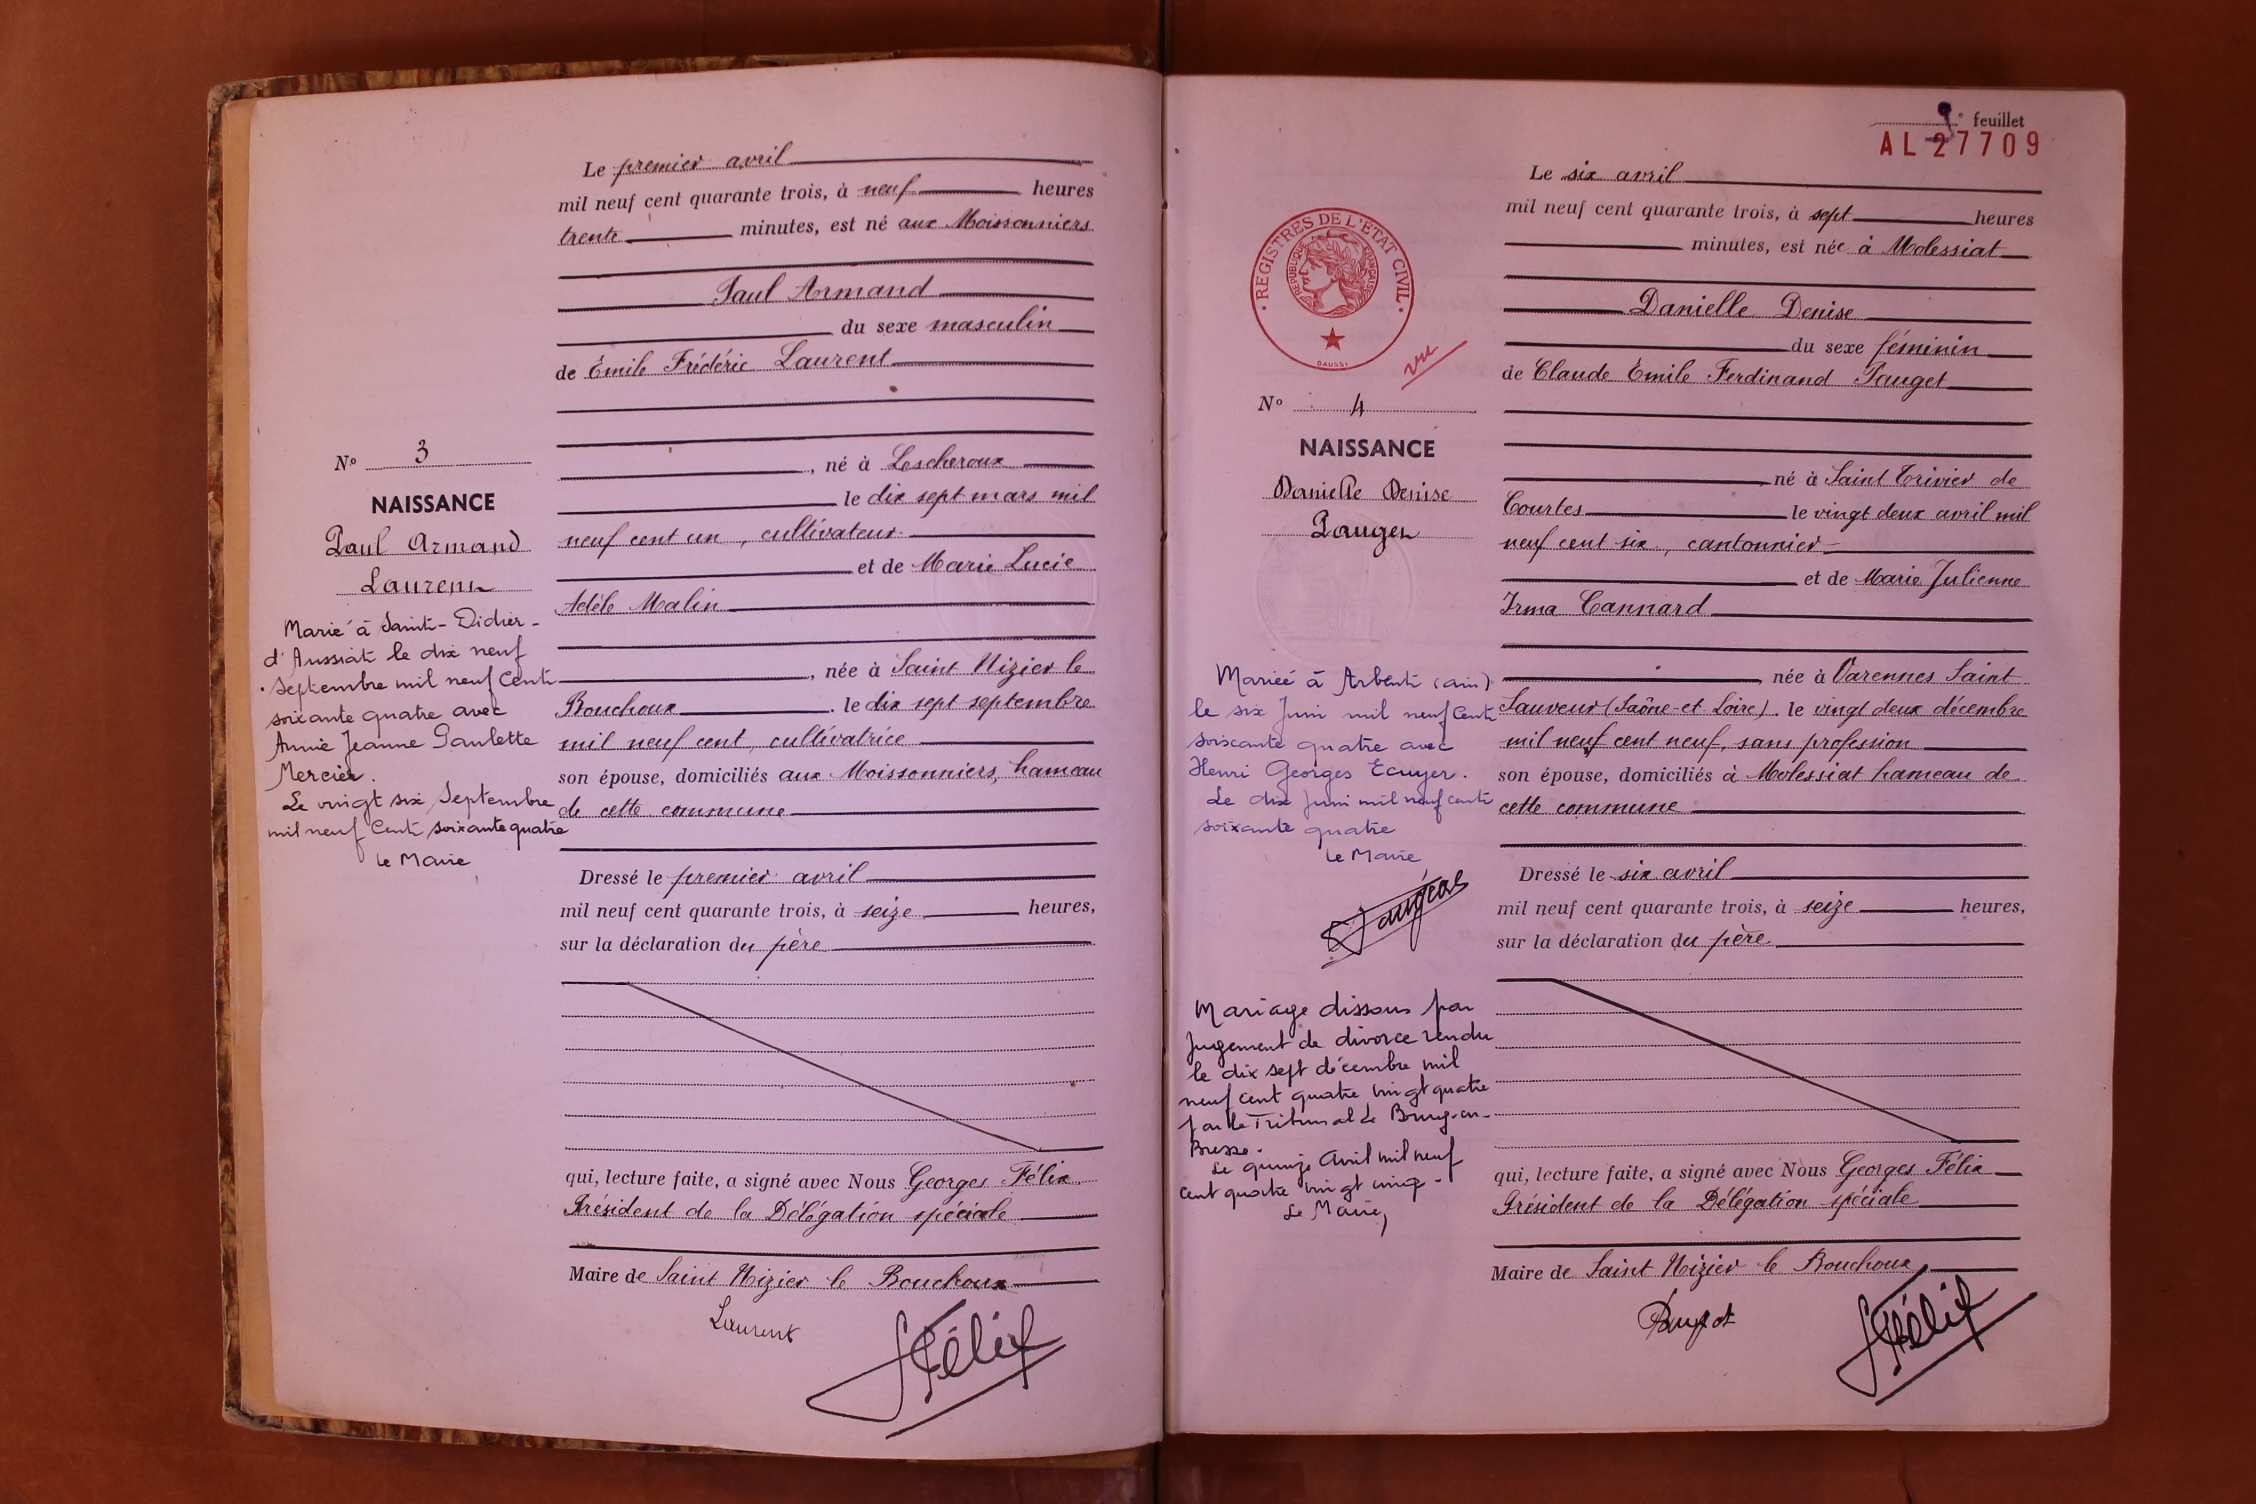 Le premier avril
mil neuf cent quarante trois, à neuf heures
trente minutes, est né aux Moissonniers
Paul Armand
du sexe masculin
de Émile Frédéric Laurent
, né à Lescheroux
le dix sept mars mil
neuf cent un, cultivateur
et de Marie Lucie
Adèle Malin
, née à Saint Nizier le
Bouchoux. le dix sept septembre
mil neuf cent, cultivatrice
son épouse, domiciliés aux Moissonniers, hameau
de cette commune
Dressé le premier avril
mil neuf cent quarante trois, à seize heures,
sur la déclaration du père
qui, lecture faite, a signé avec Nous Georges Félix
Président de la Délégation spéciale
Maire de Saint Nizier le Bouchoux
Laurent
Félix
Nº 3
NAISSANCE
Paul Armand
Laurent
Marié à Saint-Didier-
d'Aussiat le dix neuf
septembre mil neuf cent
soixante quatre avec
Annie Jeanne Paulette
Mercier.
Le vingt six Septembre
mil neuf cent soixante quatre
Le Maire
9e feuillet
AL 27709
REGISTRES DE L'ETAT CIVIL
REPUBLIQUE FRANÇAISE
DAUSSI
vu
Nº 4
NAISSANCE
Danielle Denise
Pauget
Mariée à Arbent (ain)
le six Juin mil neuf cent
soixante quatre avec
Henri Georges Ecuyer.
Le dix Juin mil neuf cent
soixante quatre
Le Maire
Mariage dissous par
jugement de divorce rendu
le dix sept décembre mil
neuf cent quatre vingt quatre
par le Tribunal de Bourg-en-
Bresse.
Le quinze Avril mil neuf
cent quatre vingt cinq.
Le Maire,
Le six avril
mil neuf cent quarante trois, à sept heures
minutes, est née à Molessiat
Danielle Denise
du sexe féminin
de Claude Émile Ferdinand Pauget
né à Saint Trivier de
Courtes le vingt deux avril mil
neuf cent six, cantonnier
et de Marie Julienne
Irma Cannard
, née à Varennes Saint
Sauveur (Saône-et-Loire). le vingt deux décembre
mil neuf cent neuf, sans profession
son épouse, domiciliés à Molessiat hameau de
cette commune
Dressé le six avril
mil neuf cent quarante trois, à seize heures,
sur la déclaration du père
qui, lecture faite, a signé avec Nous Georges Félix
Président de la Délégation spéciale
Maire de Saint Nizier le Bouchoux
Pauget
Félix